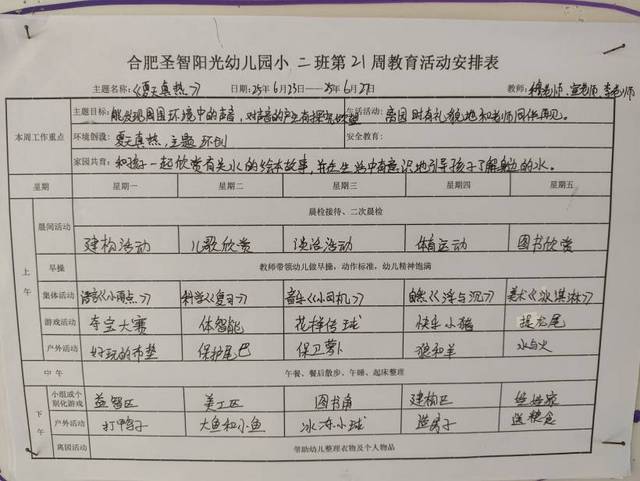 合肥圣智阳光幼儿园小 二 班第 21 周教育活动安排表
主题名称:《夏天真热》 日期:25年6月23日—25年6月27日 教师:
本周工作重点 主题目标:能发现周围环境中的声音,对声音的产生有探究欲望 生活活动:离园时有礼貌地和老师同伴再见。
环境创设:夏天真热,主题环创 安全教育:
家园共育:和孩子一起欣赏有关水的绘本故事,并在生活中有意识地引导孩子了解身边的水。
星期 星期一 星期二 星期三 星期四 星期五
上午 晨间活动 晨检接待、二次晨检
建构活动 儿歌欣赏 谈话活动 体育运动 图书欣赏
早操 教师带领幼儿做早操,动作标准,幼儿精神饱满
集体活动 语言《小雨点》 科学《复习》 音乐《小司机》 自然《浮与沉》 美术《冰淇淋》
游戏活动 夺宝大赛 体智能 花样传球 快乐小猪 捉龙尾
户外活动 好玩的布垫 保护尾巴 保卫萝卜 狼和羊 水与火
中午 午餐、餐后散步、午睡、起床整理
下午 小组或个别化游戏 益智区 美工区 图书角 建构区 娃娃家
户外活动 打鸭子 大鱼和小鱼 冰冻小球 造房子 送粮食
离园活动 帮助幼儿整理衣物及个人物品